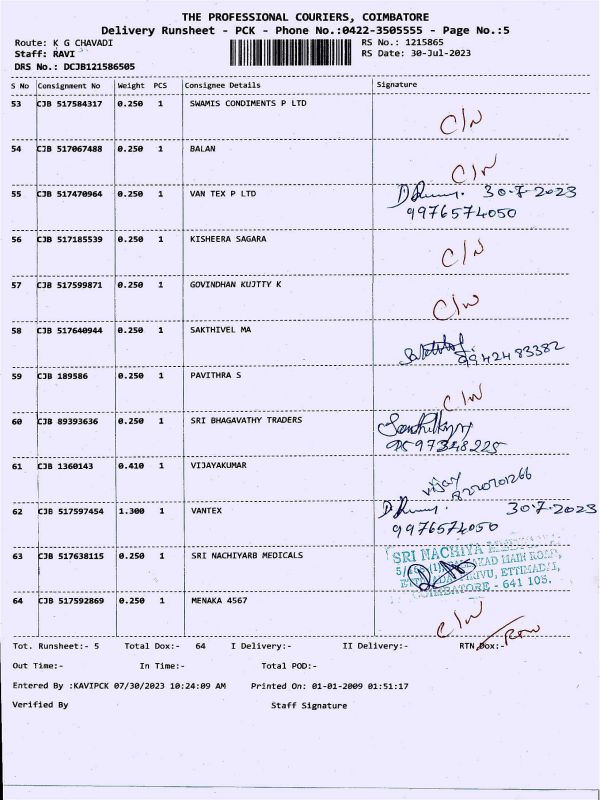 THE PROFESSIONAL COURIERS, COIMBATORE
Delivery Runsheet - PCK - Phone No.:0422-3505555 - Page No.:5
Route: K G CHAVADI RS No.: 1215865
Staff: RAVI RS Date: 30-Jul-2023
DRS No.: DCJB121586505
S No Consignment No Weight PCS Consignee Details Signature
53 CJB 517584317 0.250 1 SWAMIS CONDIMENTS P LTD
C/N
54 CJB 517067488 0.250 1 BALAN
C/N
55 CJB 517470964 0.250 1 VAN TEX P LTD 30-7-2023
9976574050
56 CJB 517185539 0.250 1 KISHEERA SAGARA
C/N
57 CJB 517599871 0.250 1 GOVINDHAN KUJTTY K
C/N
58 CJB 517640944 0.250 1 SAKTHIVEL MA
9942483382
59 CJB 189586 0.250 1 PAVITHRA S
C/N
60 CJB 89393636 0.250 1 SRI BHAGAVATHY TRADERS
97348225
61 CJB 1360143 0.410 1 VIJAYAKUMAR
vijay
8220701266
62 CJB 517597454 1.300 1 VANTEX 30.7.2023
9976574050
63 CJB 517638115 0.250 1 SRI NACHIYARB MEDICALS
SRI NACHIYA
MAIN ROAD,
ETTIMADAI,
COIMBATORE - 641 105.
64 CJB 517592869 0.250 1 MENAKA 4567
C/N
Tot. Runsheet:- 5 Total Dox:- 64 I Delivery:- II Delivery:- RTN Dox:-
Out Time:- In Time:- Total POD:-
Entered By :KAVIPCK 07/30/2023 10:24:09 AM Printed On: 01-01-2009 01:51:17
Verified By Staff Signature